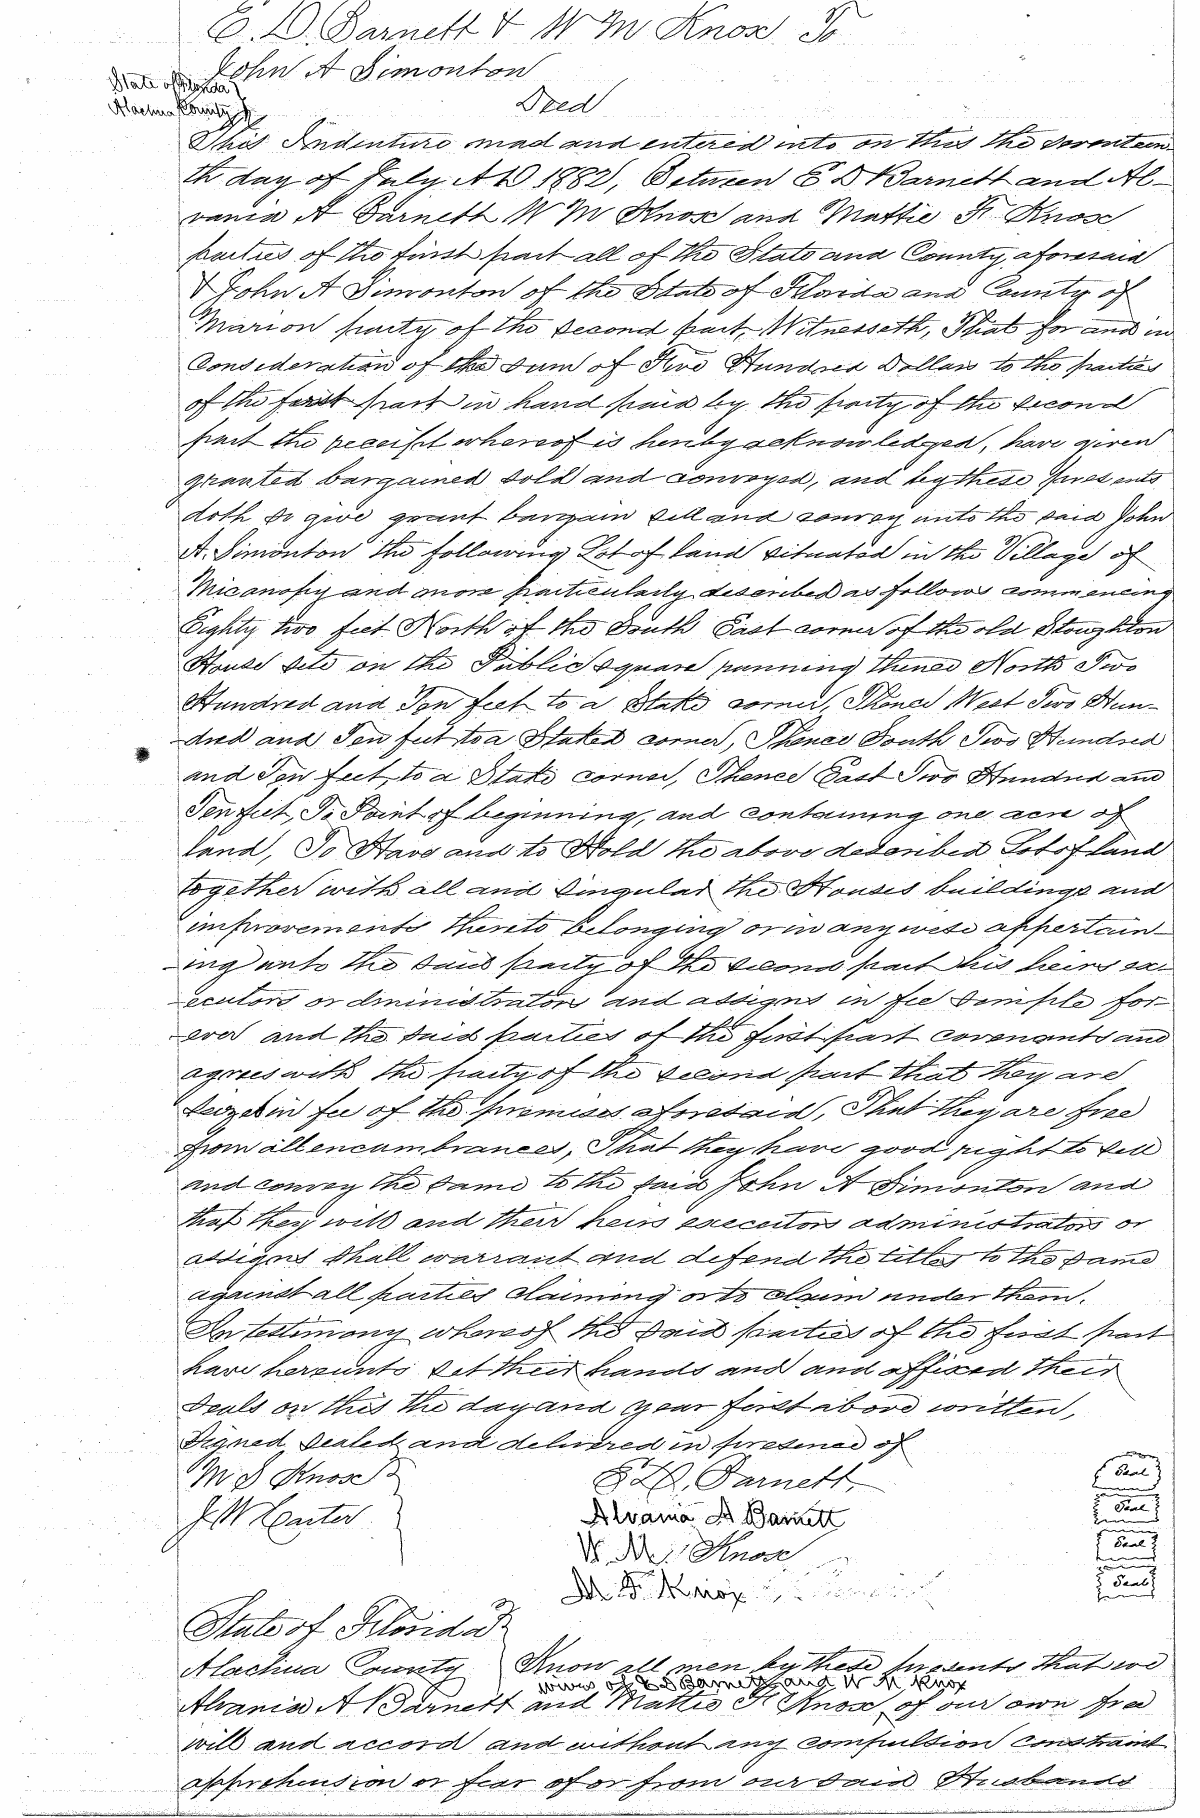 E. D. Barnett & W M Knox To
John A Simonton
State of Florida
Alachua County
Deed
This Indenture mad and entered into on this the Seventeen-
th day of July A D 1882, Between E D Barnett and Al-
vania A Barnett W M Knox and Mattie F. Knox
parties of the first part all of the State and County aforesaid
& John A Simonton of the State of Florida and County of
Marion party of the second part, Witnesseth, That for and in
Consideration of the sum of Five Hundred Dollars to the parties
of the first part in hand paid by the party of the second
part the receipt whereof is hereby acknowledged, have given
granted bargained sold and conveyed, and by these presents
doth do give grant bargain sell and convey unto the said John
A. Simonton the following Lot of land situated in the Village of
Micanopy and more particularly described as follows commencing
Eighty two feet North of the South East corner of the old Stoughton
House site on the Public square running thence North Two
Hundred and Ten feet to a Stake corner, Thence West Two Hun-
dred and Ten feet to a Staked corner, Thence South Two Hundred
and Ten feet, to a Stake corner, Thence East Two Hundred and
Ten feet, To Point of beginning, and containing one acre of
land, To Have and to Hold the above described Lot of land
together with all and singular the Houses buildings and
improvements thereto belonging or in any wise appertain-
ing unto the said party of the second part his heirs ex-
ecutors or dministrators and assigns in fee simple for-
ever and the said parties of the first part covenants and
agrees with the party of the second part that they are
seized in fee of the premises aforesaid, That they are free
from all encumbrances, That they have good right to sell
and convey the same to the said John A Simonton and
that they will and their heirs executors administrators or
assigns shall warrant and defend the titles to the same
against all parties claiming or to claim under them.
In testimony whereof the said parties of the first part
have hereunto set their hands and and affixed their
seals on this the day and year first above written,
Signed, sealed and delivered in presence of
M S Knox E. D. Barnett, Seal
J. W Carter Alvania A Barnett Seal
W. M. Knox Seal
M. F. Knox Seal
State of Florida
Alachua County Know all men by these presents that we
wives of E D Barnett and W M Knox
Alvania A Barnett and Mattie F. Knox, of our own free
will and accord and without any compulsion constraint
apprehension or fear of or from our said Husbands